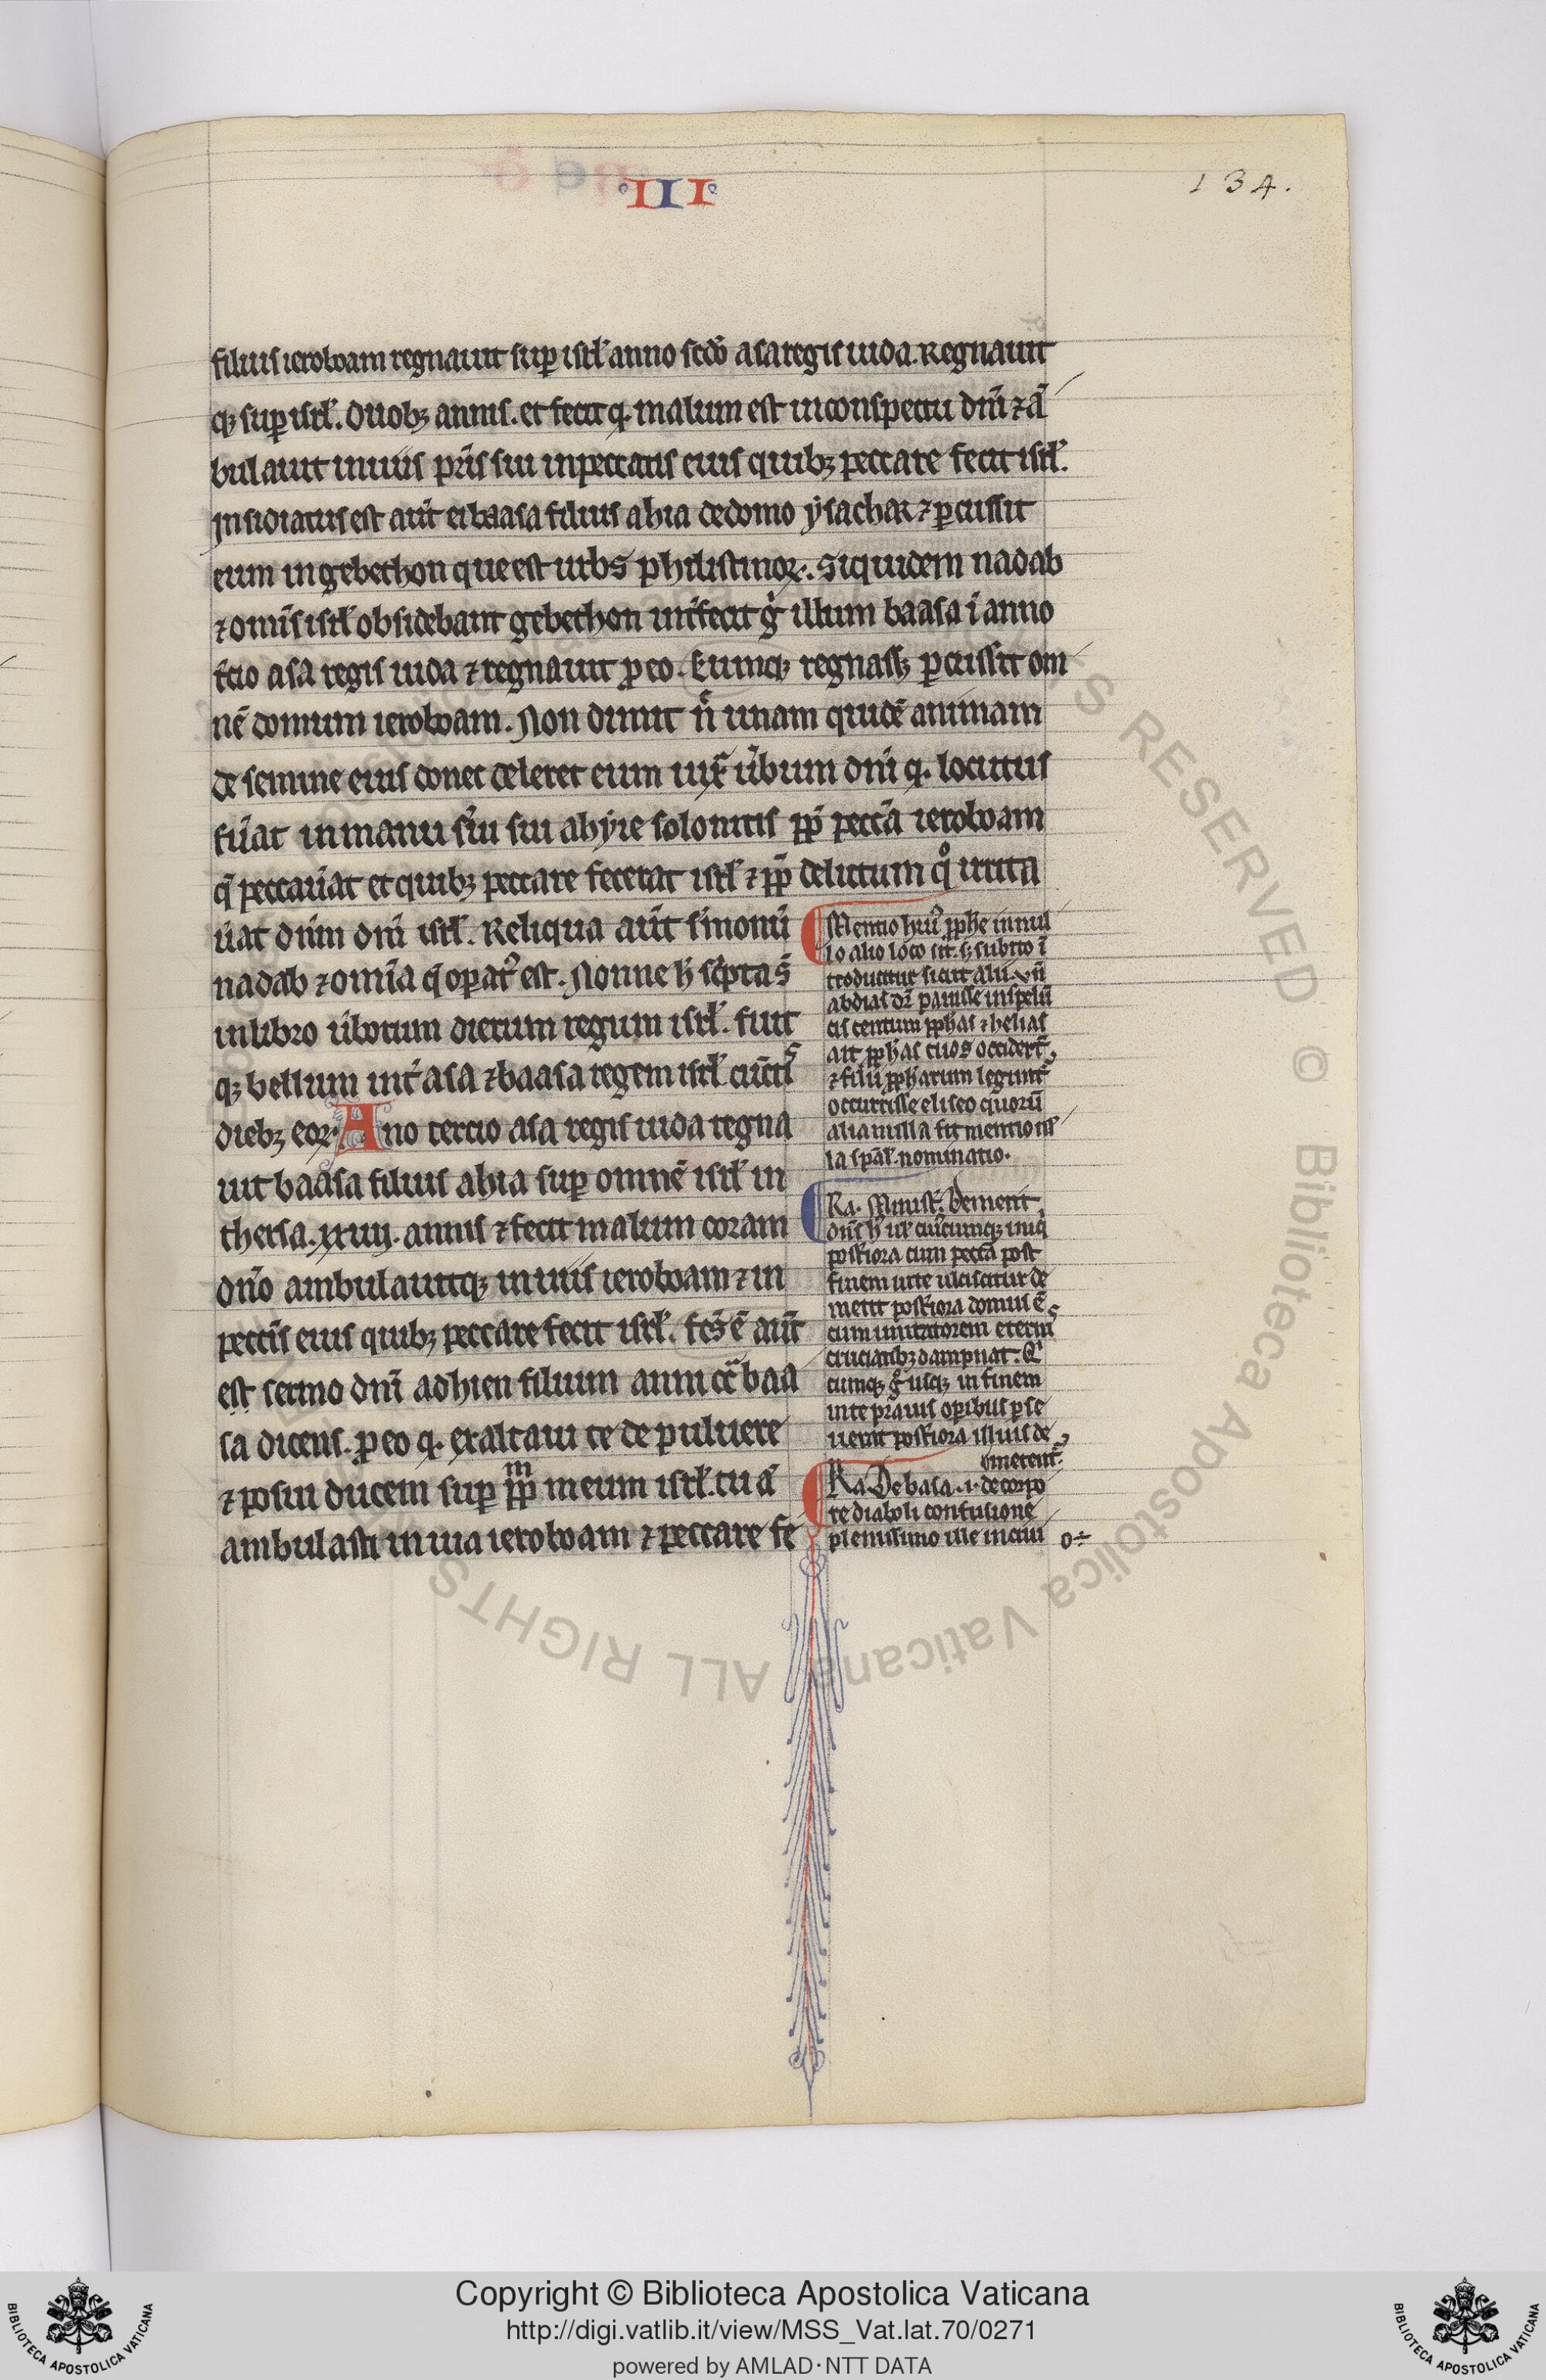 III
134.
filius ieroboam regnauit sup isrł anno scdo asa regis iuda. Regnauit
qȝ sup isrł. duobȝ annis. et fecit q. malum est in conspectu dñi ⁊ ā
bulauit in uiis pr̃is sui in peccatis eius quibȝ peccare fecit isrł.
Insidiatus est aut̃ ei baasa filius ahia de domo ysachar ⁊ ꝑcussit
eum in gebethon que est urbs philistinoꝝ. Siquidem nadab
⁊ om̃s isrł obsidebant gebethon int̃fecit gͥ illum baasa ī anno
t̃cio asa regis iuda ⁊ regnauit ꝓ eo. Cumqȝ regnassȝ ꝑcussit om
nē domum ieroboam. Non dimit n̄ unam quidē animam
de semine eius donec deleret eum iux̃ ũbum dñi q. locutus
fũat in manu sũi sui ahyie solonitis pp̃ pecc̃a ieroboam
q̄ peccaũat et quibȝ peccare fecerat isrł ⁊ pp̃ delictum qͦ irrita
ũat dñm dñi isrł. Reliqua aut̃ s̃monũ
nadab ⁊ om̃ia q̄ opatꝰ est. Nonne h̄ sc̃pta s̄
in libro ũborum dierum regum isrł. fuit
qȝ bellum int̃ asa ⁊ baasa regem isrł cũctis
diebȝ eoꝝ. Ano tercio asa regis iuda regna
uit baasa filius ahia sup omnē isrł in
thersa. xxiiij. annis ⁊ fecit malum coram
dño ambulauitqȝ in uiis ieroboam ⁊ in
pecc̃is eius quibȝ peccare fecit isrł. fc̃s ē aut̃
est sermo dñi ad hieu filium anni cc̃ baa
sa dicens. ꝓ eo q. exaltaui te de puluere
⁊ posui ducem sup pp̃m meum isrł. tu ā
ambulasti in uia ieroboam ⁊ peccare fe
Mentio huiꝰ ꝓphe in nul
lo alio loco fit. sȝ subito ī
troducitur sicut alii. vñ
abdias dr̃ pauisse in spelũ
cis centum ꝓphas ⁊ helias
ait ꝓphas tuos occidert̃
⁊ filii ꝓpharum legunt̃
occurrisse eliseo quorũ
alia nulla fit mentio nͥ
la sp̃al. nominatio.
Ra. Minist̃. Demetit
dñs
post̃iora cum pecc̃a post
finem uite ulciscitur de
metit post̃iora domus ē
cum imitatorem eternis
cruciatibȝ dampnat. Q
cumqȝ gͥ usqȝ in finem
uite prauis opibus ꝑse
uerit post̃iora illius de
metent̃.
Ra De basa .i. de corpo
re diaboli confusione
plenissimo ille in ciui
Copyright © Biblioteca Apostolica Vaticana
http://digi.vatlib.it/view/MSS_Vat.lat.70/0271
powered by AMLAD·NTT DATA
BIBLIOTECA APOSTOLICA VATICANA
BIBLIOTECA APOSTOLICA VATICANA
Biblioteca Apostolica Vaticana ALL RIGHTS RESERVED ©